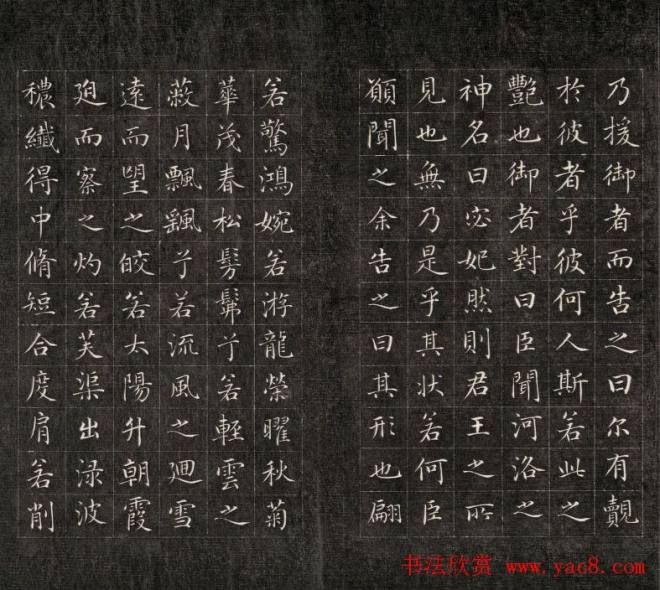 乃援御者而告之曰尔有觌
於彼者乎彼何人斯若此之
艷也御者對曰臣聞河洛之
神名曰宓妃然則君王之所
見也無乃是乎其状若何臣
願聞之余告之曰其形也翩
若驚鴻婉若游龍榮曜秋菊
華茂春松髣髴兮若輕雲之
蔽月飄颻兮若流風之廻雪
遠而望之皎若太陽升朝霞
廹而察之灼若芙渠出渌波
穠纖得中脩短合度肩若削
书法欣赏 www.yac8.com